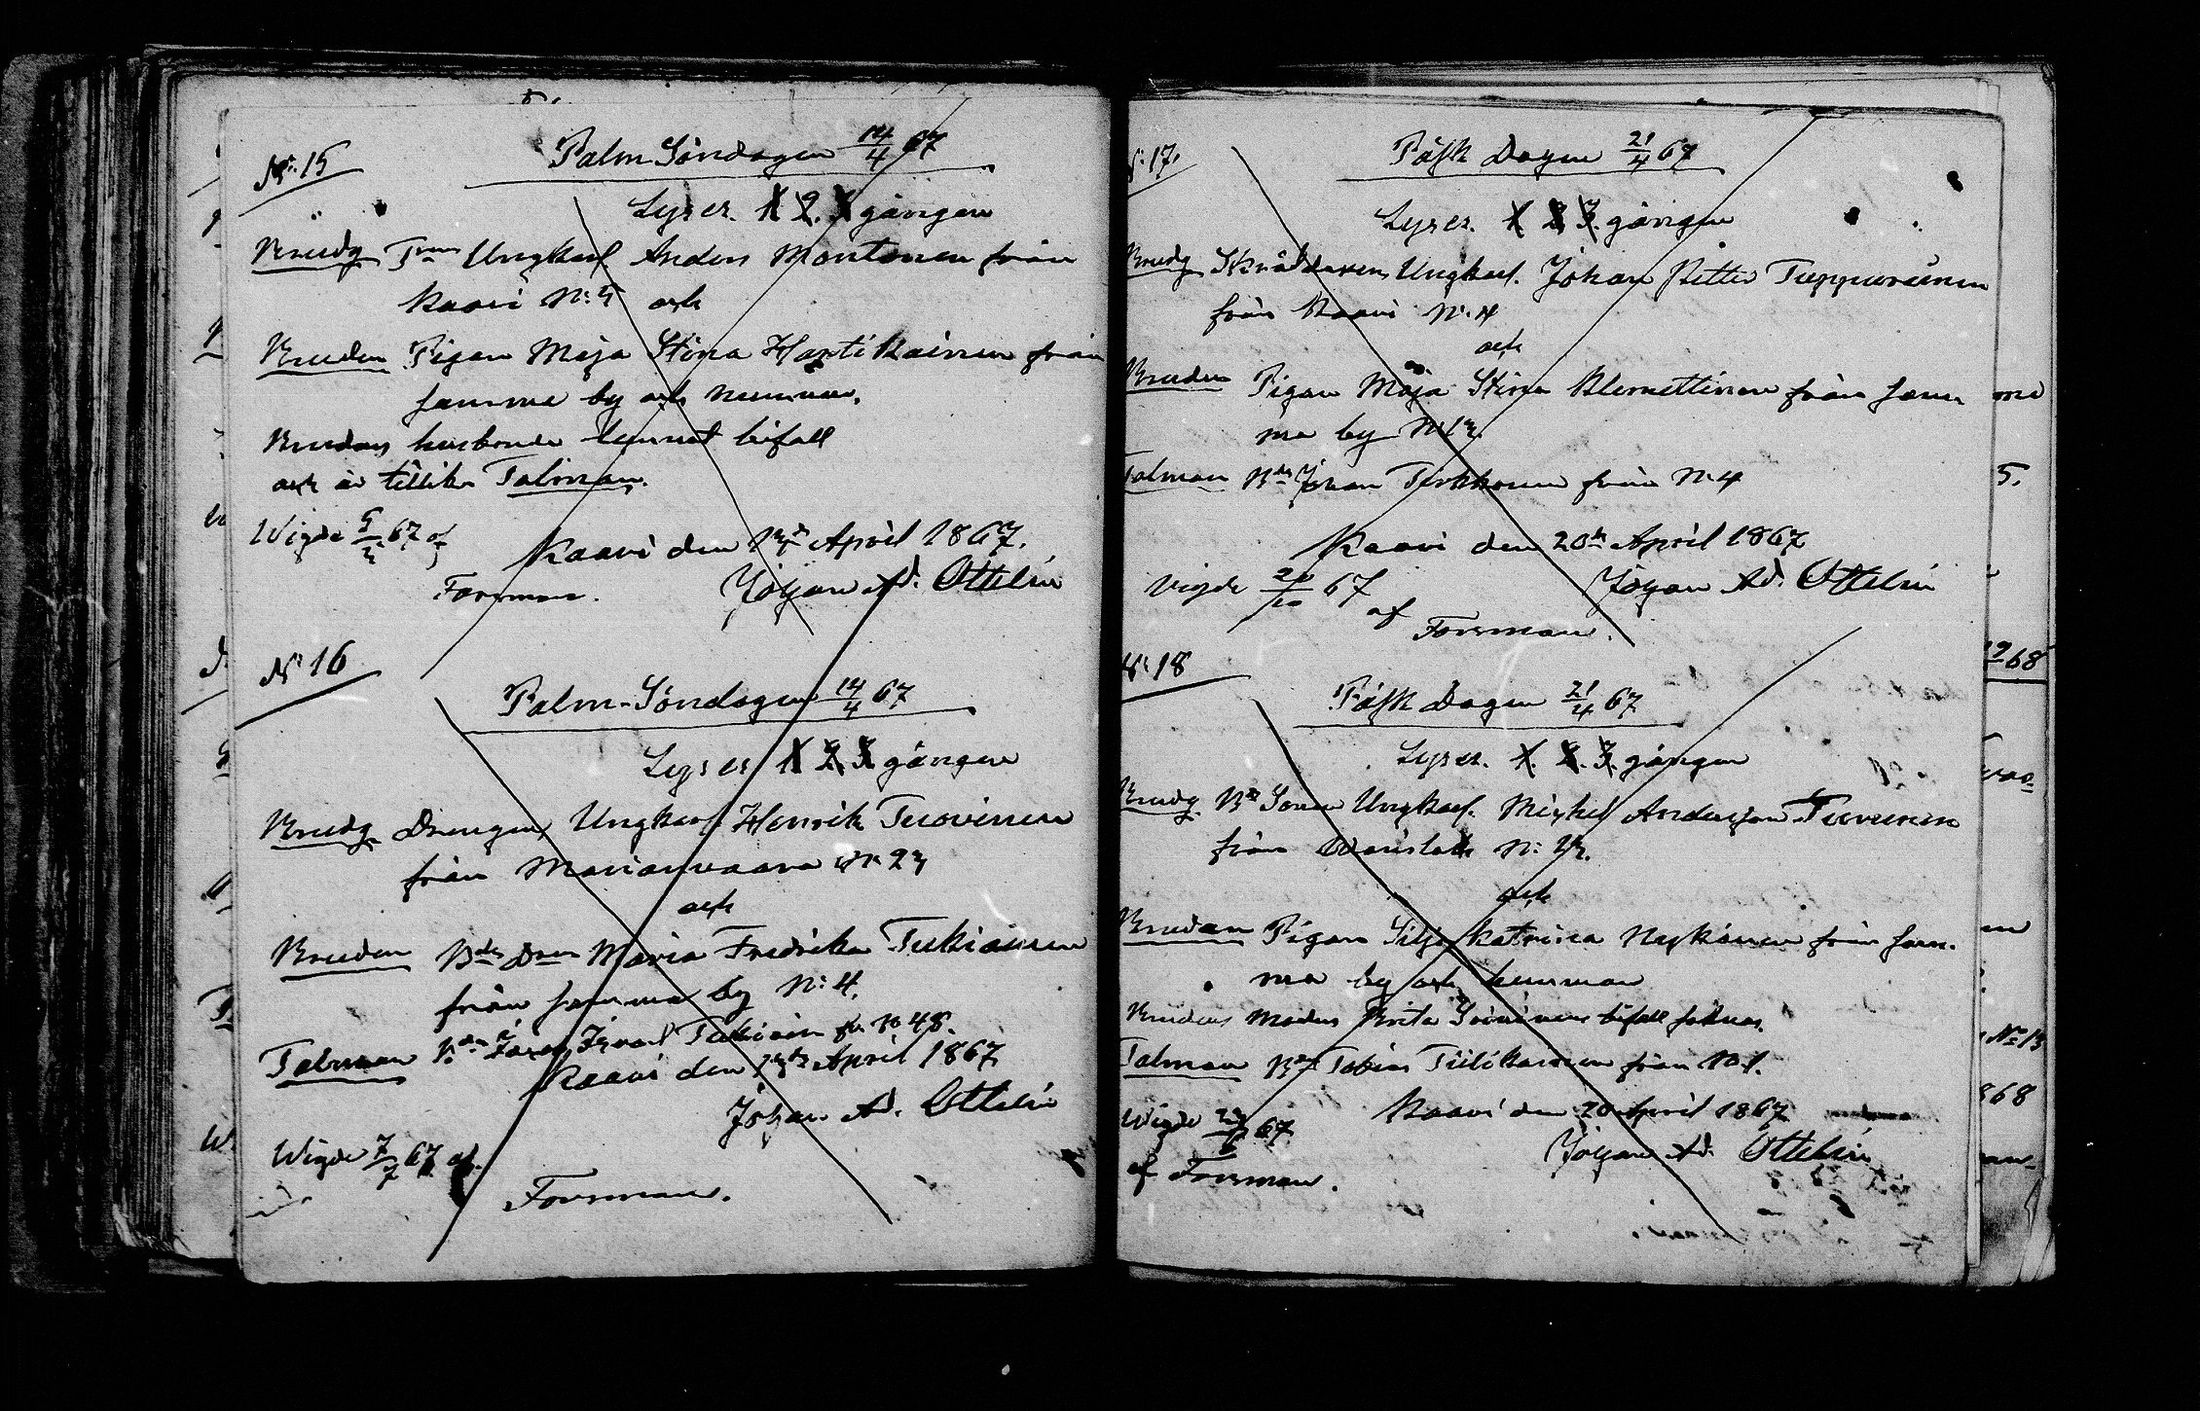 No. 15
Palm Söndagen 14/4 67
Lyses. 1 2. 3 gången
Brudg Ungkarl Anders Montonen från
Kaavi No: 5 och
Bruden Pigan Maja Stina Hartikainen från
samma by och nummer.
Brudens husbonde lemnat bifall
och är tillika Talman.
Wigde 67 af
Forsman.
Kaavi den 13de April 1867.
Johan Ad. Ottelin
No 16
Palm-Söndagen 14/4 67
Lyses 1 2 3 gången
Brudg Drengen Ungkarl Henrik Tuovinen
från Marianvaara No 23
och
Bruden Bde Dren Maria Fredrika Tukiainen
från samma by No: 4.
Talman Tukiain fr. No 48.
Kaavi den 13de April 1867
Johan Ad. Ottelin
Wigde 7/7 67 af
Forsman.
No: 17.
Påsk Dagen 21/4 67
Lyses. 1 2 3. gången
Brudg Skräddaren Ungkarl. Johan Petter Tuppurainen
från Kaavi No. 4
och
Bruden Pigan Maja Stina Klemettinen från sam
ma by No 13.
Talman Bde Johan Pirhonen från No 4
Kaavi den 20de April 1867
Johan Ad. Ottelin
Vigde 20/10 67
af
Forsman.
No: 18
Påsk Dagen 21/4 67
Lyses. 1. 2. 3. gången
Brudg Bde Sonen Ungkarl. Mickel Andersson Turunen
från No: 13.
och
Bruden Pigan Silja Katrina Nykänen från sam-
ma by och nummer
Brudens Moders Brita Soininens bifall saknas.
Talman Bde Tobias Tiilikainen från No 1.
Kaavi den 20 April 1867
Johan Ad. Ottelin
Wigde 67
af Forsman.
5.
68
No 13
868